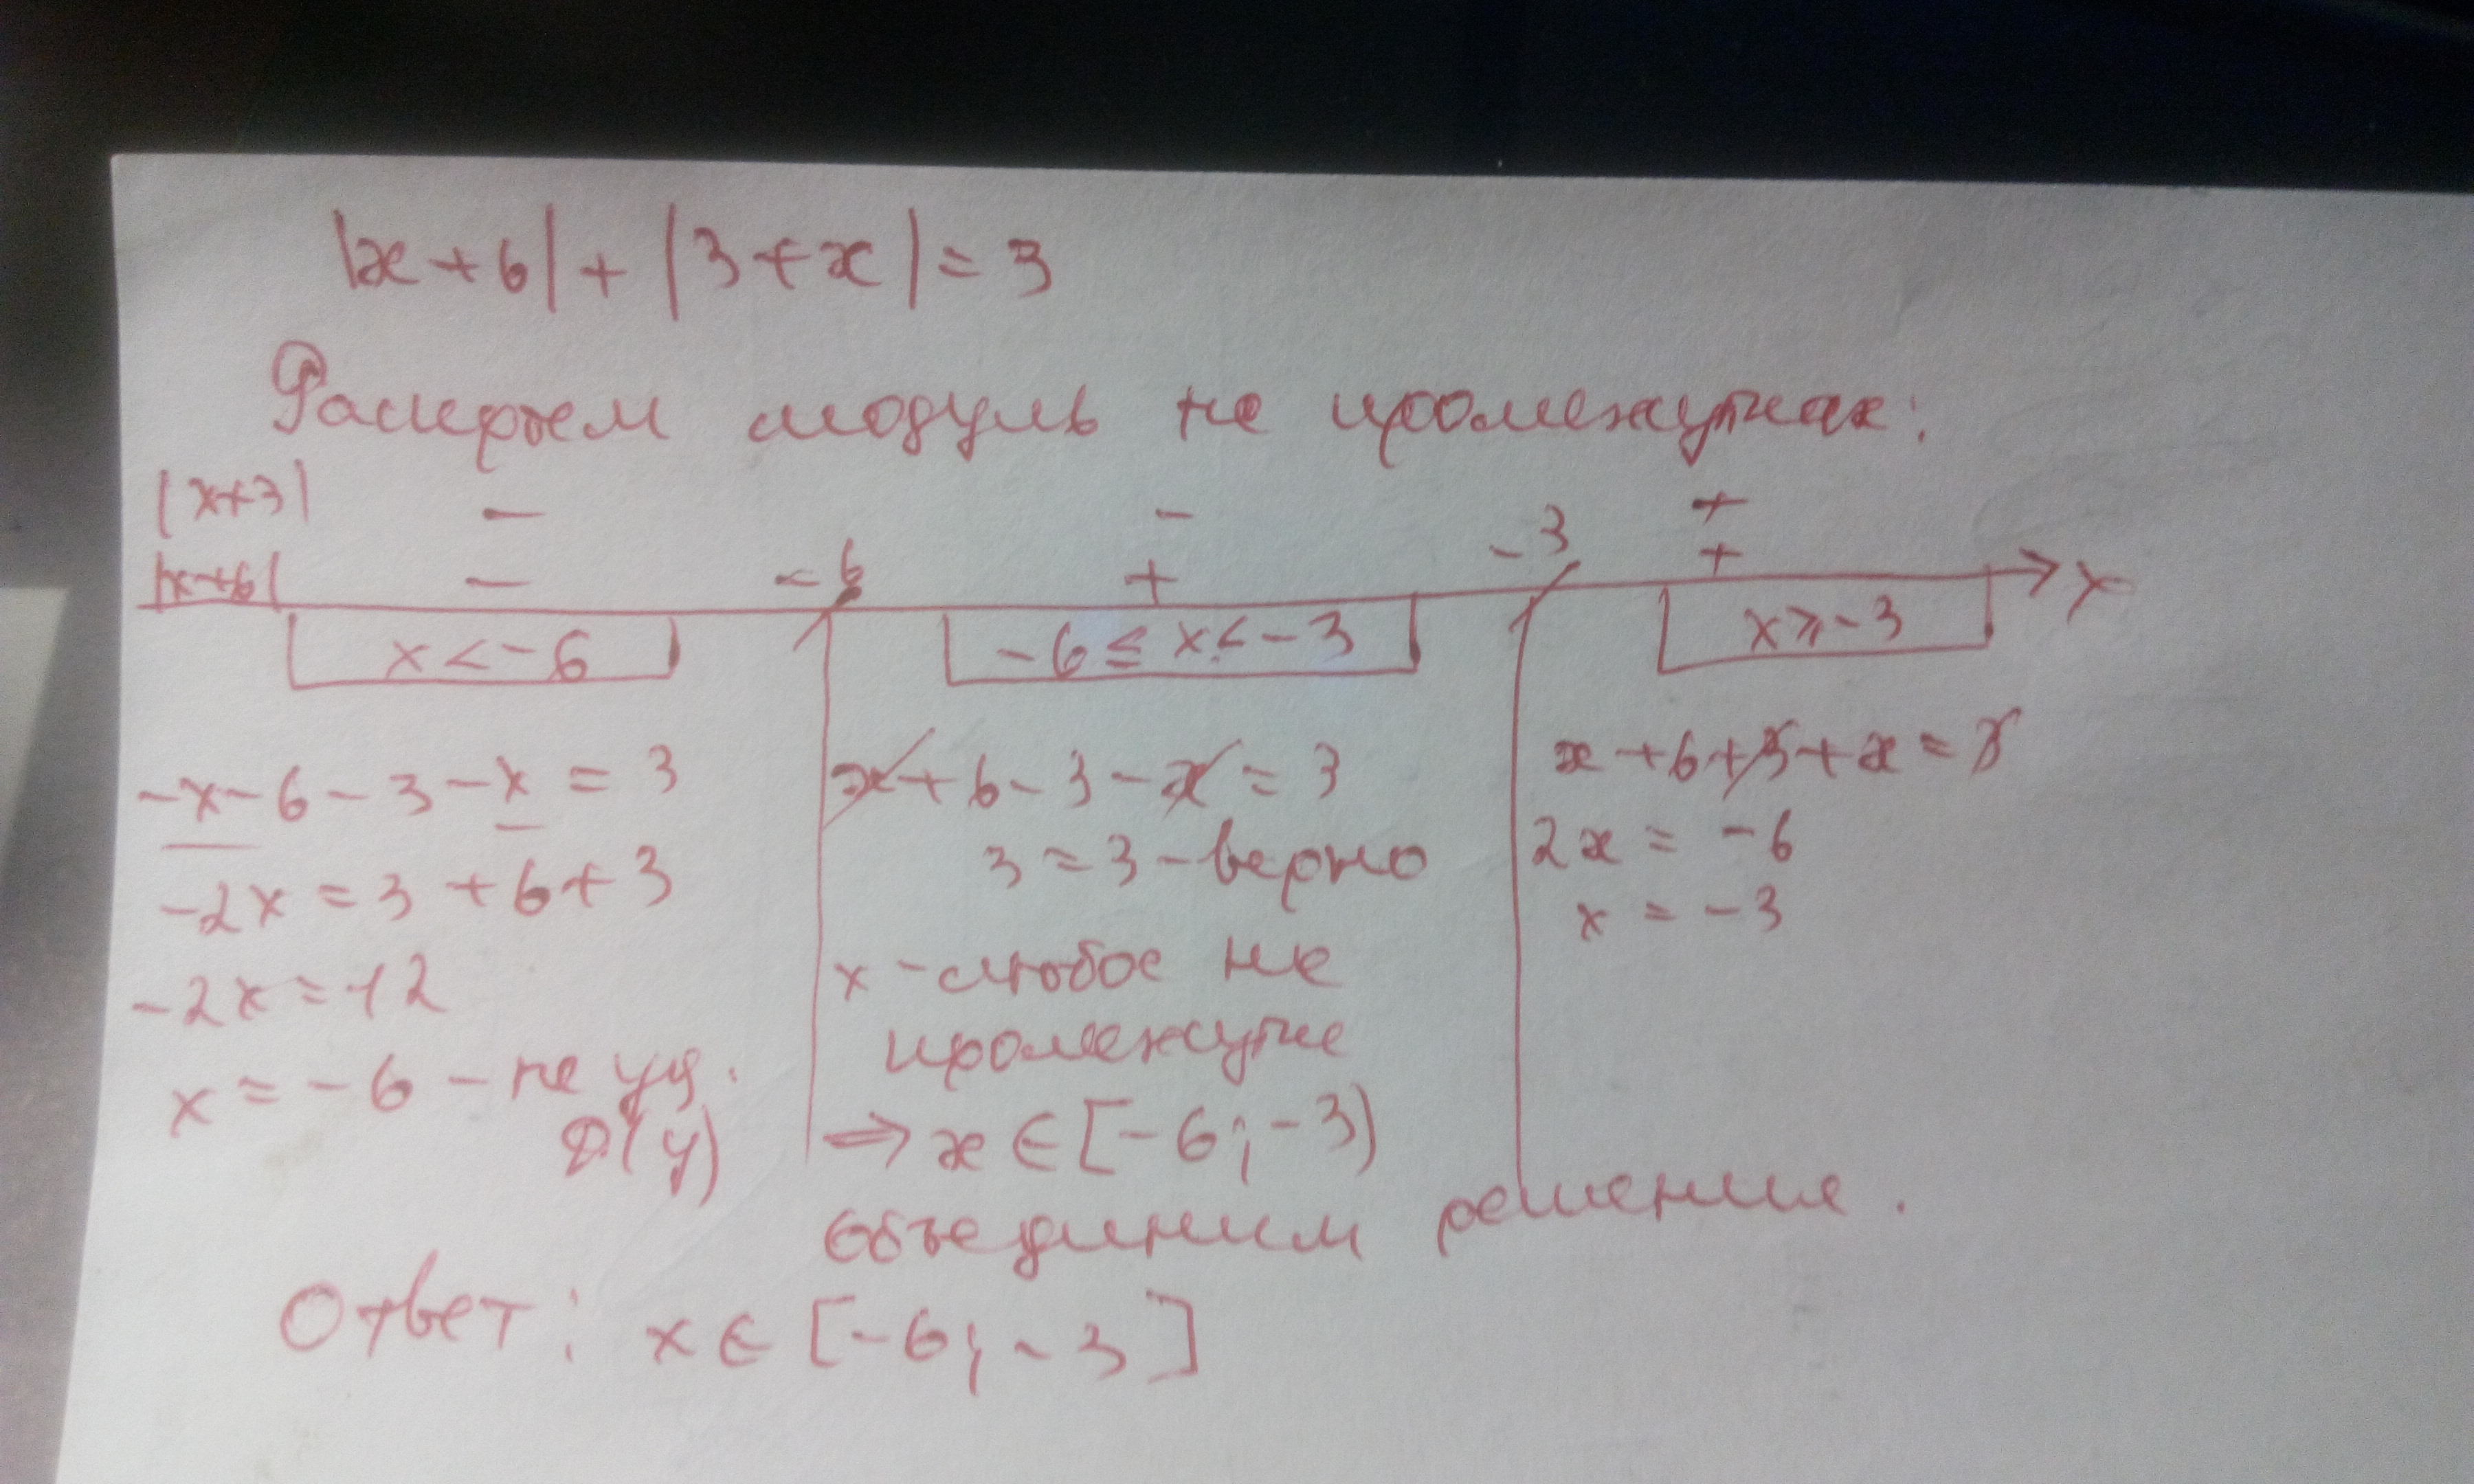 |x+6|+|3+x|=3
Раскроем модуль на промежутках:
|x+3| - - +
|x+6| - -6 + -3 + x
x<-6 -6≤x<-3 x≥-3
-x-6-3-x=3
-2x=3+6+3
-2x=12
x=-6-не уд.
D(y)
x+6-3-x=3
3=3-верно
x-любое на
промежутке
⇒x∈[-6;-3)
x+6+3+x=3
2x=-6
x=-3
Объединим решения.
Ответ: x∈[-6;-3]